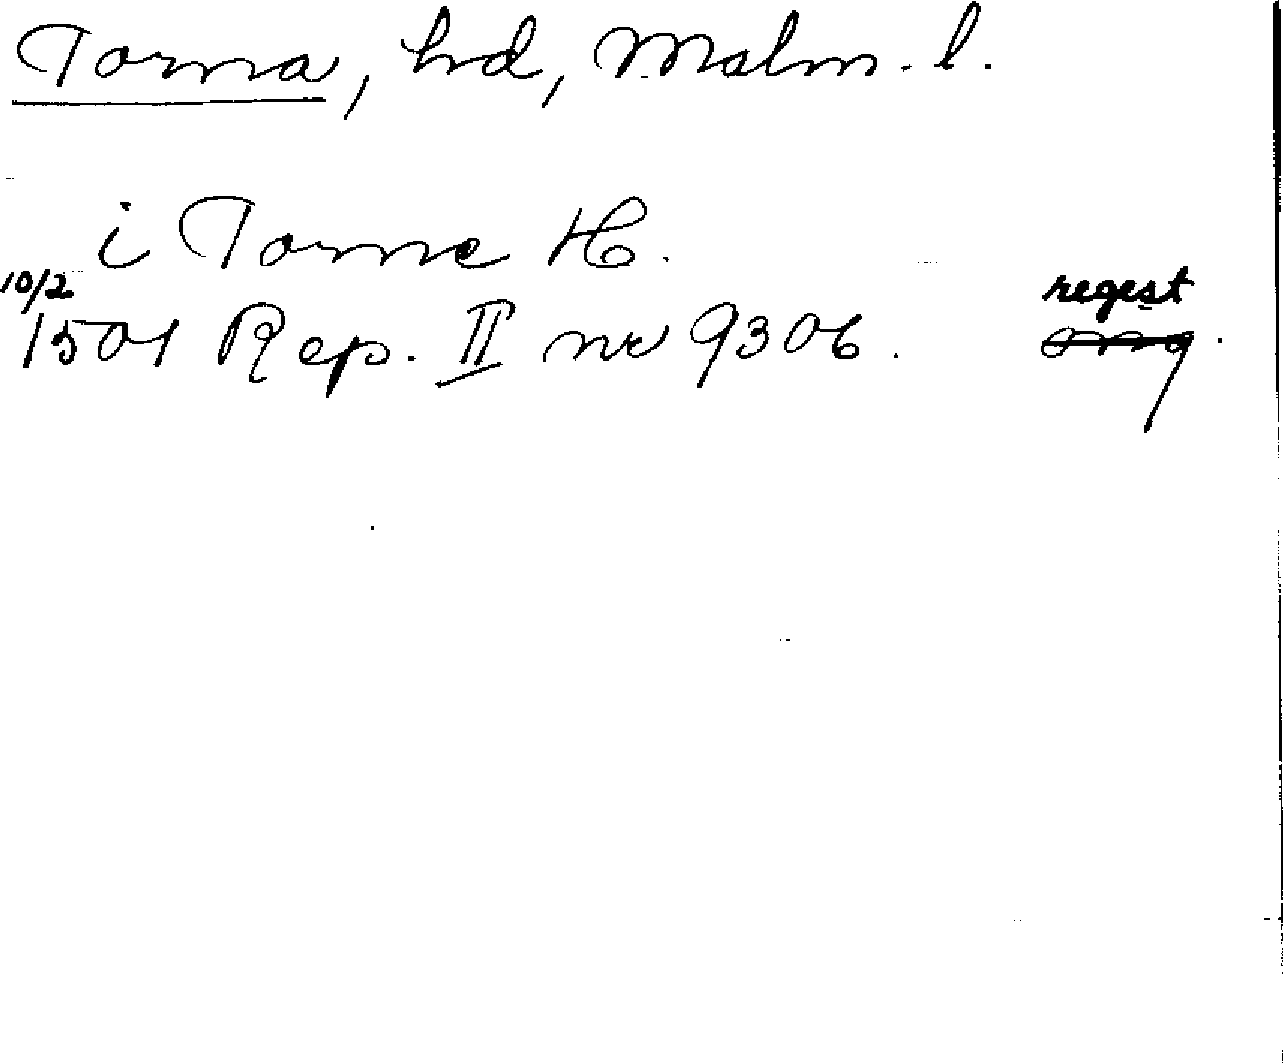 Torna, hd, Malm. l.
i Torne H.
10/2 regest
1501 Rep. II nr 9306. omg.